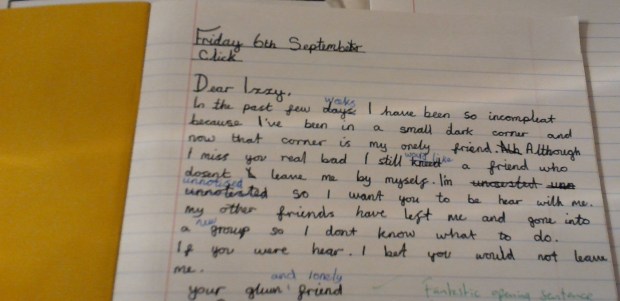 Friday 6th September
Click
Dear Izzy,
In the past few days weeks I have been so incompleat
because I've been in a small dark corner and
now that corner is my onely friend. Although
I miss you real bad I still would like a friend who
dosent leave me by myself. I'm
unnotised so I want you to be hear with me.
my other friends have left me and gone into
a new group so I dont know what to do.
If you were hear. I bet you would not leave
me.
and lonely
your glum friend
Fantastic opening sentence